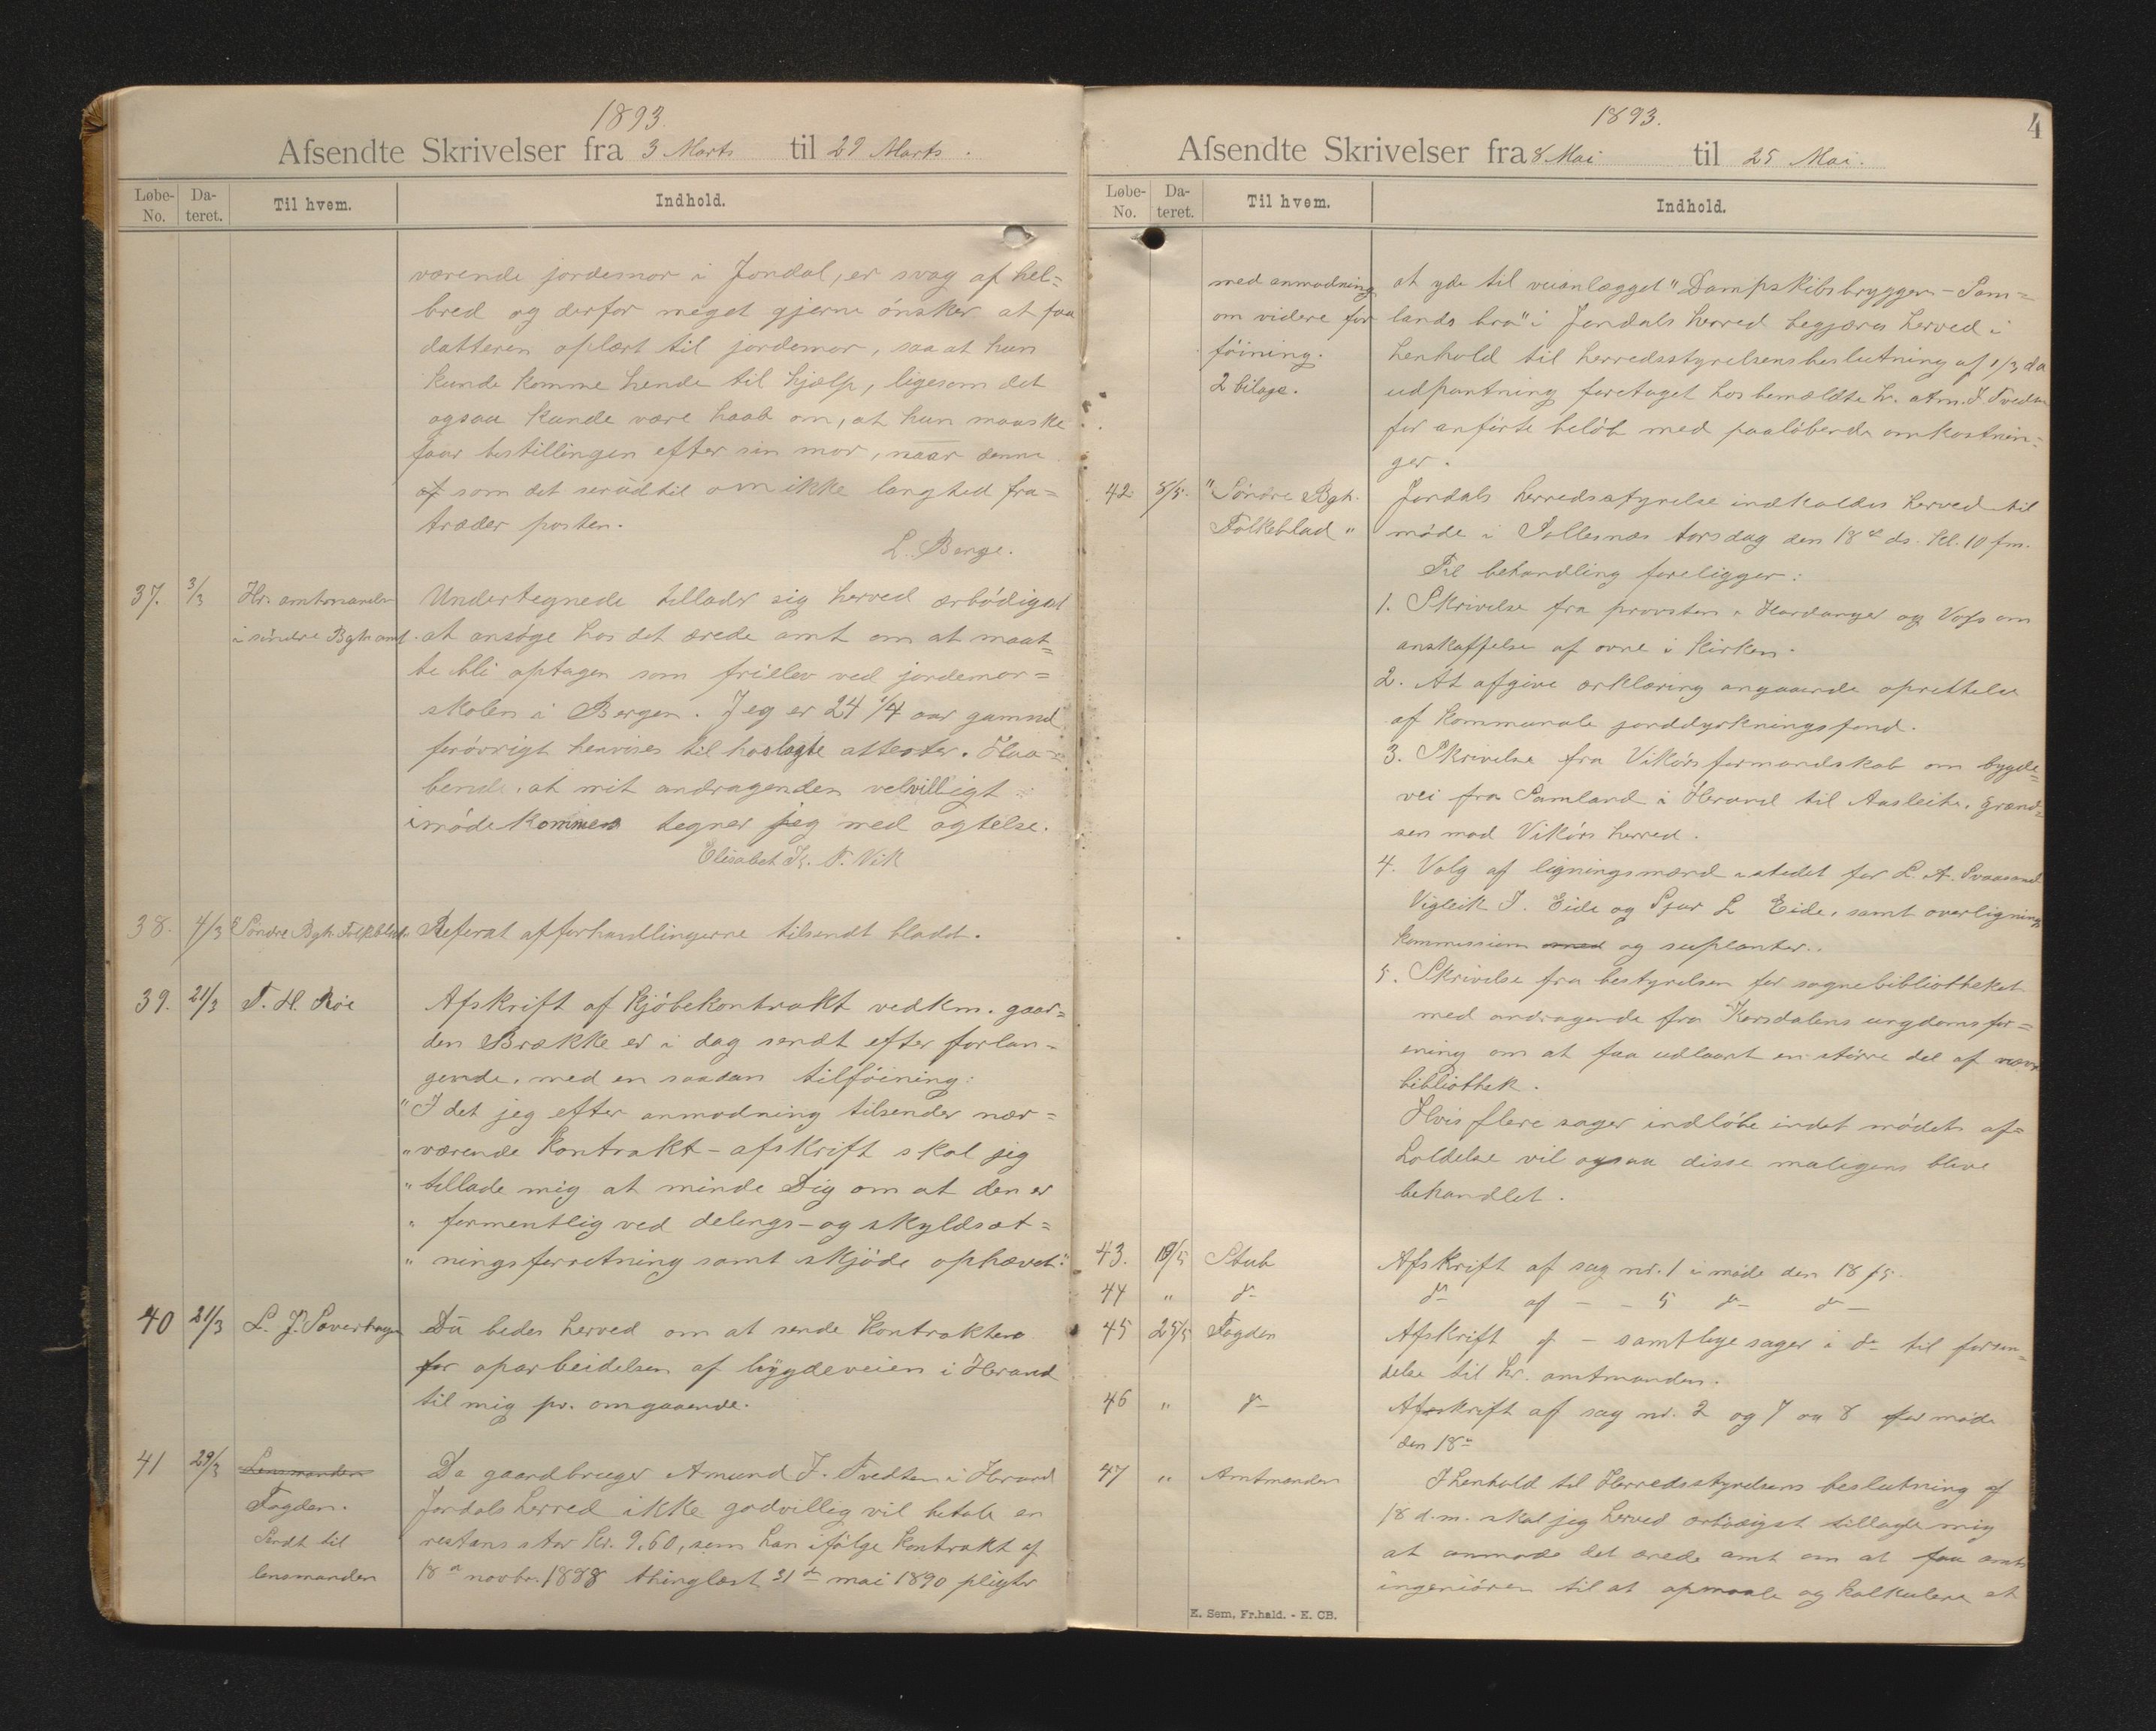 1893.
Afsendte Skrivelser fra 3 Marts til 29 Marts.
Løbe-No. Da-teret. Til hvem. Indhold.
værende jordemor i Jondal, er svag af hel=
bred og derfor meget gjerne ønsker at faa
datteren oplært til jordemor, saa at hun
kunde komme hende til hjælp, ligesom det
ogsaa kunde være haab om, at hun maaske
faar bestillingen efter sin mor, naar denne
af som det ser ud til om ikke langtid fra=
træder posten.
L. Berge.
37. 3/3 Hr. amtmanden Undertegnede tillader sig herved ærbødigst
i søndre Bgh amt. at ansøge hos det ærede amt om at maat=
te bli optagen som frielev ved jordemor=
skolen i Bergen. Jeg er 24 1/4 aar gammel
forøvrigt henvises til hoslagte attester. Haa=
bende, at mit andragenden velvilligt
imødekommes tegner jeg med agtelse.
Elisabet K. T. Vik
38. 4/3 "Söndre Bgh. Folkeblad" Referat af forhandlingerne tilsendt bladd.
39. 21/3 T. H. Röe Afskrift af Kjöbekontrakt vedkm. gaar=
den Brække er i dag sendt efter forlan=
gende, med en saadan tilföining:
"I det jeg efter anmodning tilsender nær=
"værende Kontrakt-afskrift skal jeg
"tillade mig at minde Dig om at den er
" formentlig ved delings- og skyldsæt=
" ningsforretning samt skjöde ophævet."
40 21/3 L. J. Saverhagen Du bedes herved om at sende Kontrakten
for oparbeidelsen af bygdeveien i Herand
til mig pr. omgaaende.
41 29/3 Lensmanden Da gaardbruger Amund J. Tvedten i Herand
Fogden. Jondals Herred ikke godvillig vil betale en
Sendt til restans stor Kr. 9,60, som han ifölge Kontrakt af
lensmanden 18de novbr. 1888 thinglæst 31de mai 1890 pligter
1893.
4
Afsendte Skrivelser fra 8 Mai til 25 Mai.
Løbe-No. Da-teret. Til hvem. Indhold.
med anmodning at yde til veianlægget "Dampskibsbryggen - Sam=
om videre for lands bro" i Jondals herred begjæres herved i
föining. henhold til herredsstyrelsens beslutning af 1/3 d a
2 bilage. udpantning foretaget hos bemældte hr. Am. J. Tvedten
for anförte belöb med paalöbende omkostnin=
ger.
42. 8/5. "Söndre Bgh. Jondals herredsstyrelse indkaldes herved til
Folkeblad" möde i Sollesnæs torsdag den 18de ds. kl. 10 fm.
Til behandling foreligger:
1. Skrivelse fra provsten i Hardanger og Voss om
anskaffelse af ovne i kirken.
2. At afgive erklæring angaaende oprettelse
af Kommunale jorddyrkningsfond.
3. Skrivelse fra Vikörs formandskab om bygde=
vei fra Samland i Herand til Aasleite, grænd=
sen mod Vikörs herred.
4. Valg af ligningsmænd istedet for L. A. Svaasand
Vigleik J. Eide og Sjur L Eide, samt overlignings
kommission med og suplanter.
5. Skrivelse fra bestyrelsen for sognebibliotheket
med andragende fra Korsdalens ungdomsfor=
ening om at faa udlaant en större del af nævnte
bibliothek.
Hvis flere sager indlöbe indet mödets af=
holdelse vil ogsaa disse muligens blive
behandlet.
43. 19/5 Stub Afskrift af sag nr. 1 i möde den 18/5.
44 " do do af - - 5 do do
45 25/5 Fogden Afskrift af - samtlige sager i do til forsen=
delse til hr. amtmanden.
46 " do Afskrift af sag nr. 2 og 7 og 8 for möde
den 18de
47 " Amtmanden I henhold til Herredsstyrelsens beslutning af
18 d.m. skal jeg herved ærbödigst tillade mig
at anmode det ærede amt om at faa amts
ingeniören til at opmaale og kalkulere et
E. Sem, Fr.hald. - E. CB.